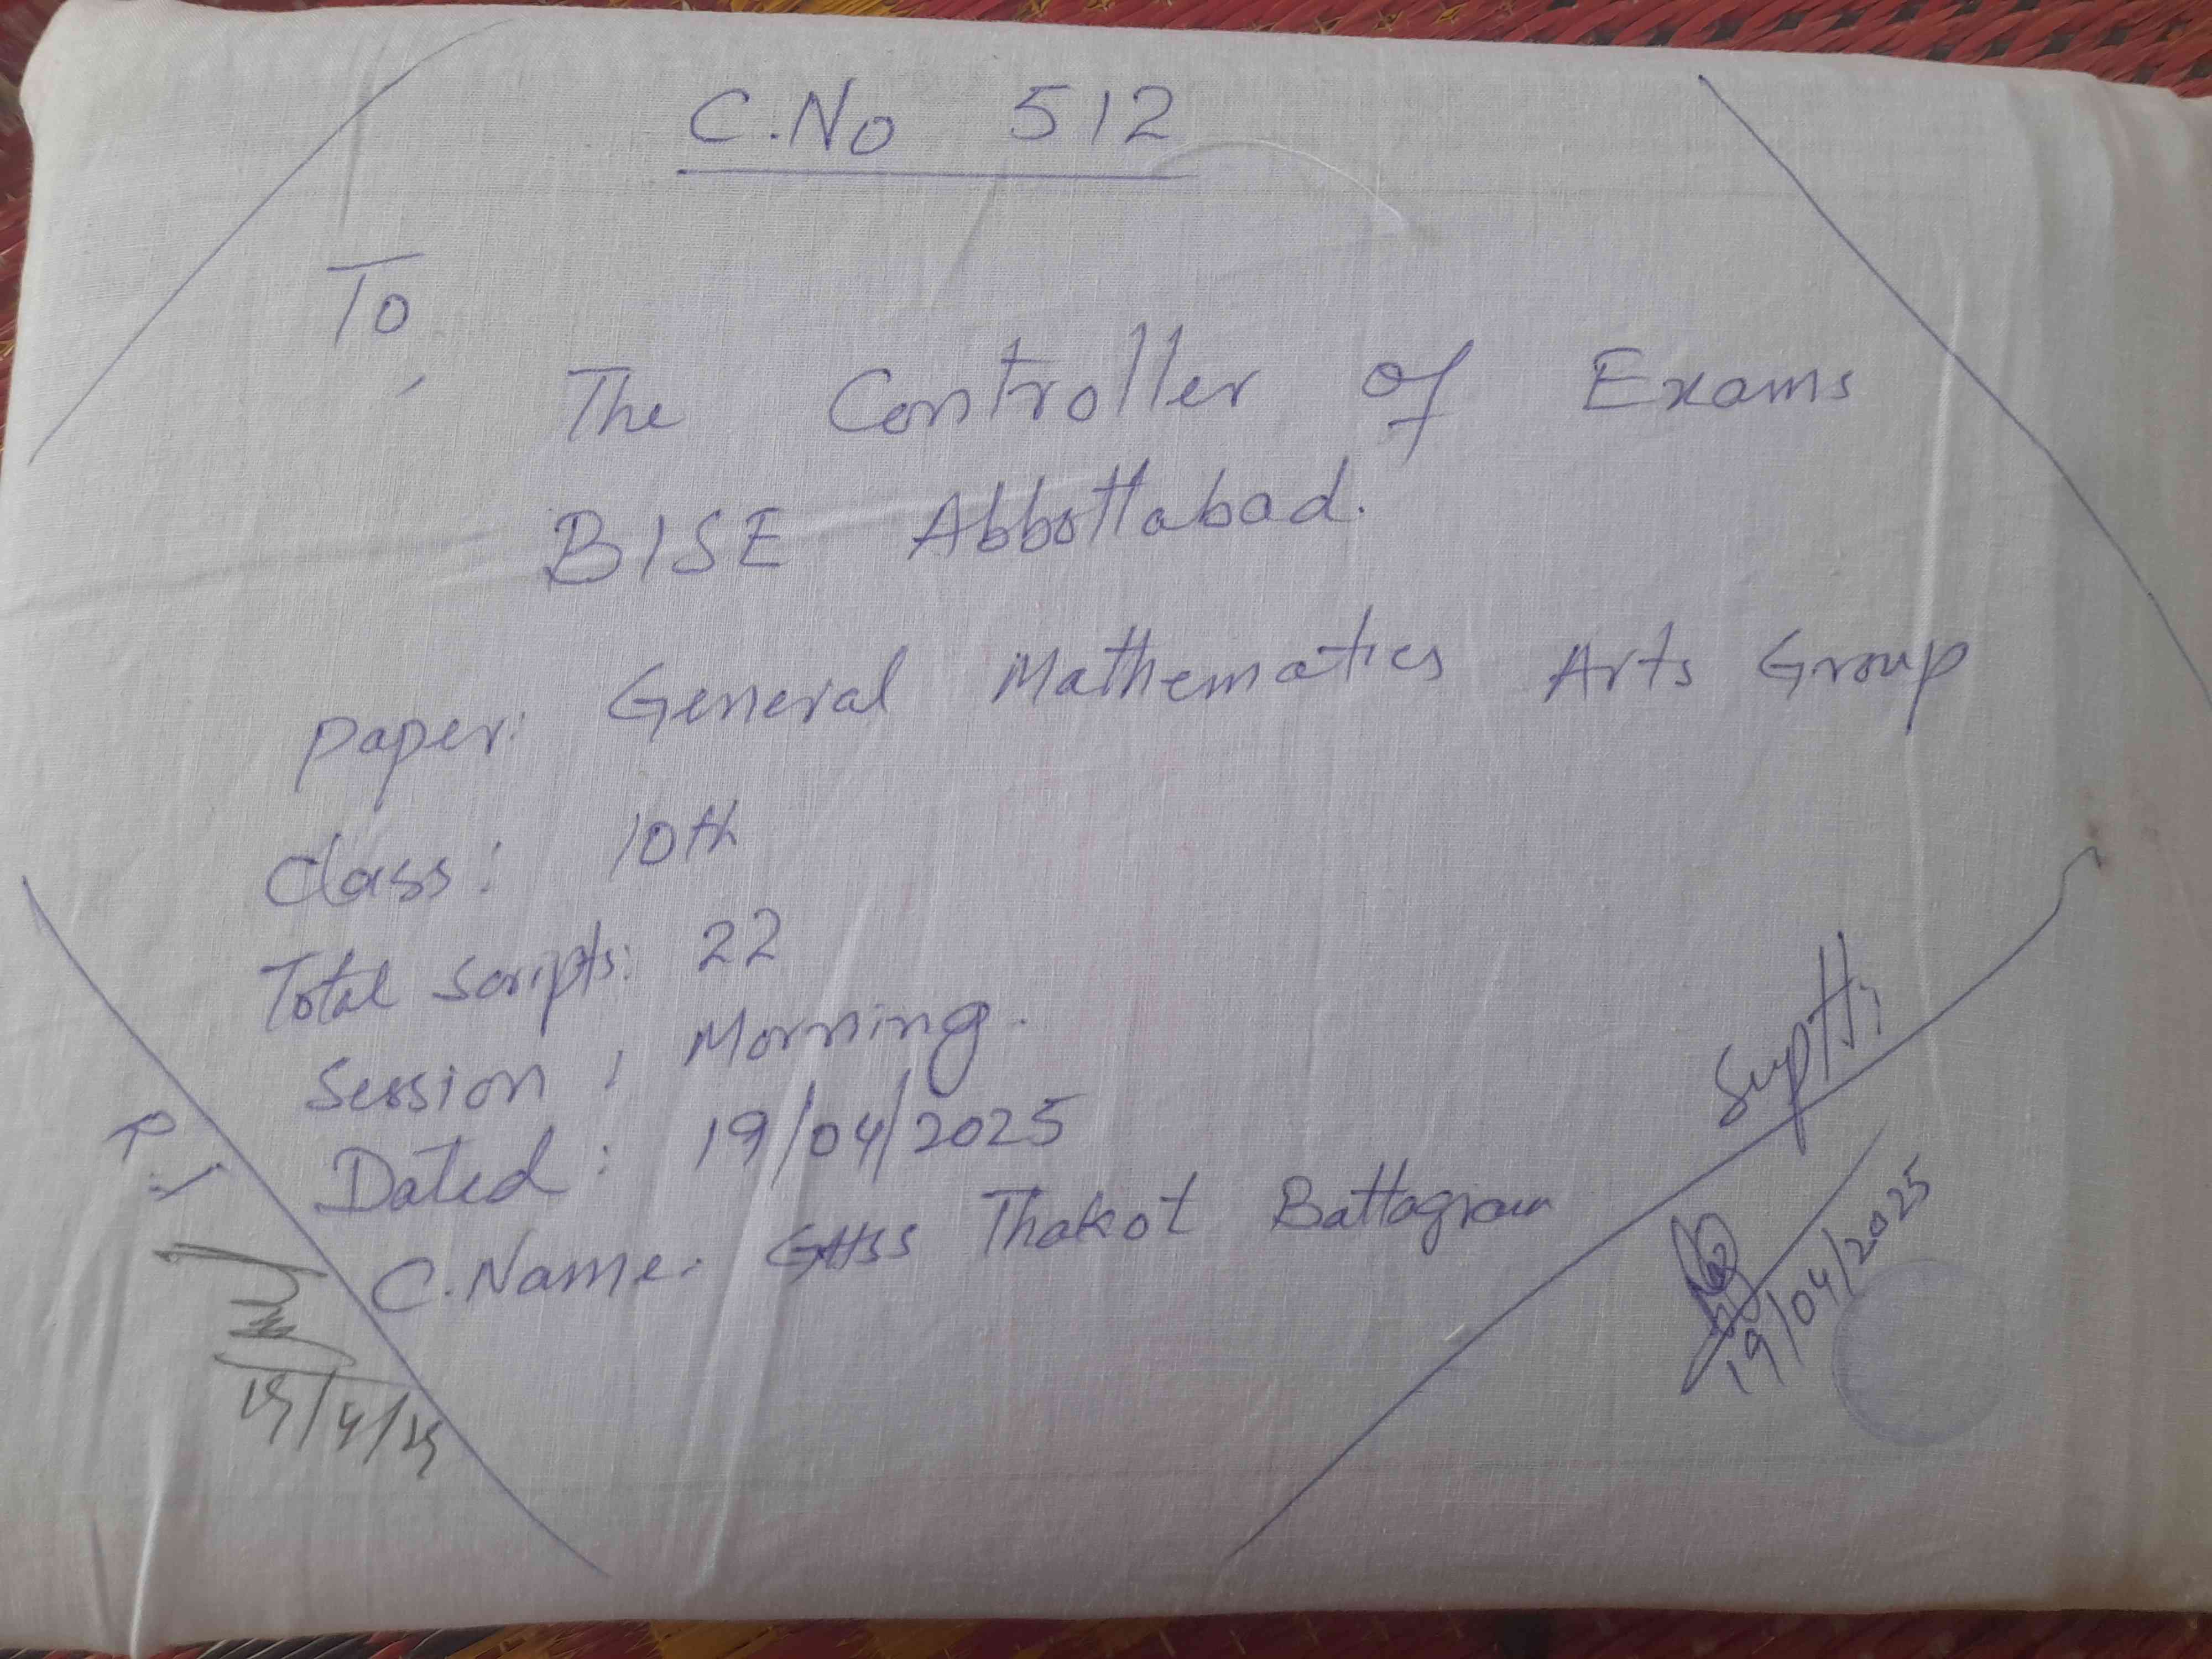 C.No 512
To,
The Controller of Exams
BISE Abbottabad.
Paper: General Mathematics Arts Group
Class: 10th
Total Scripts: 22
Session : Morning.
Dated : 19/04/2025
C.Name. GHSS Thakot Battagram
Suptt;
19/04/2025
R.I
19/4/25